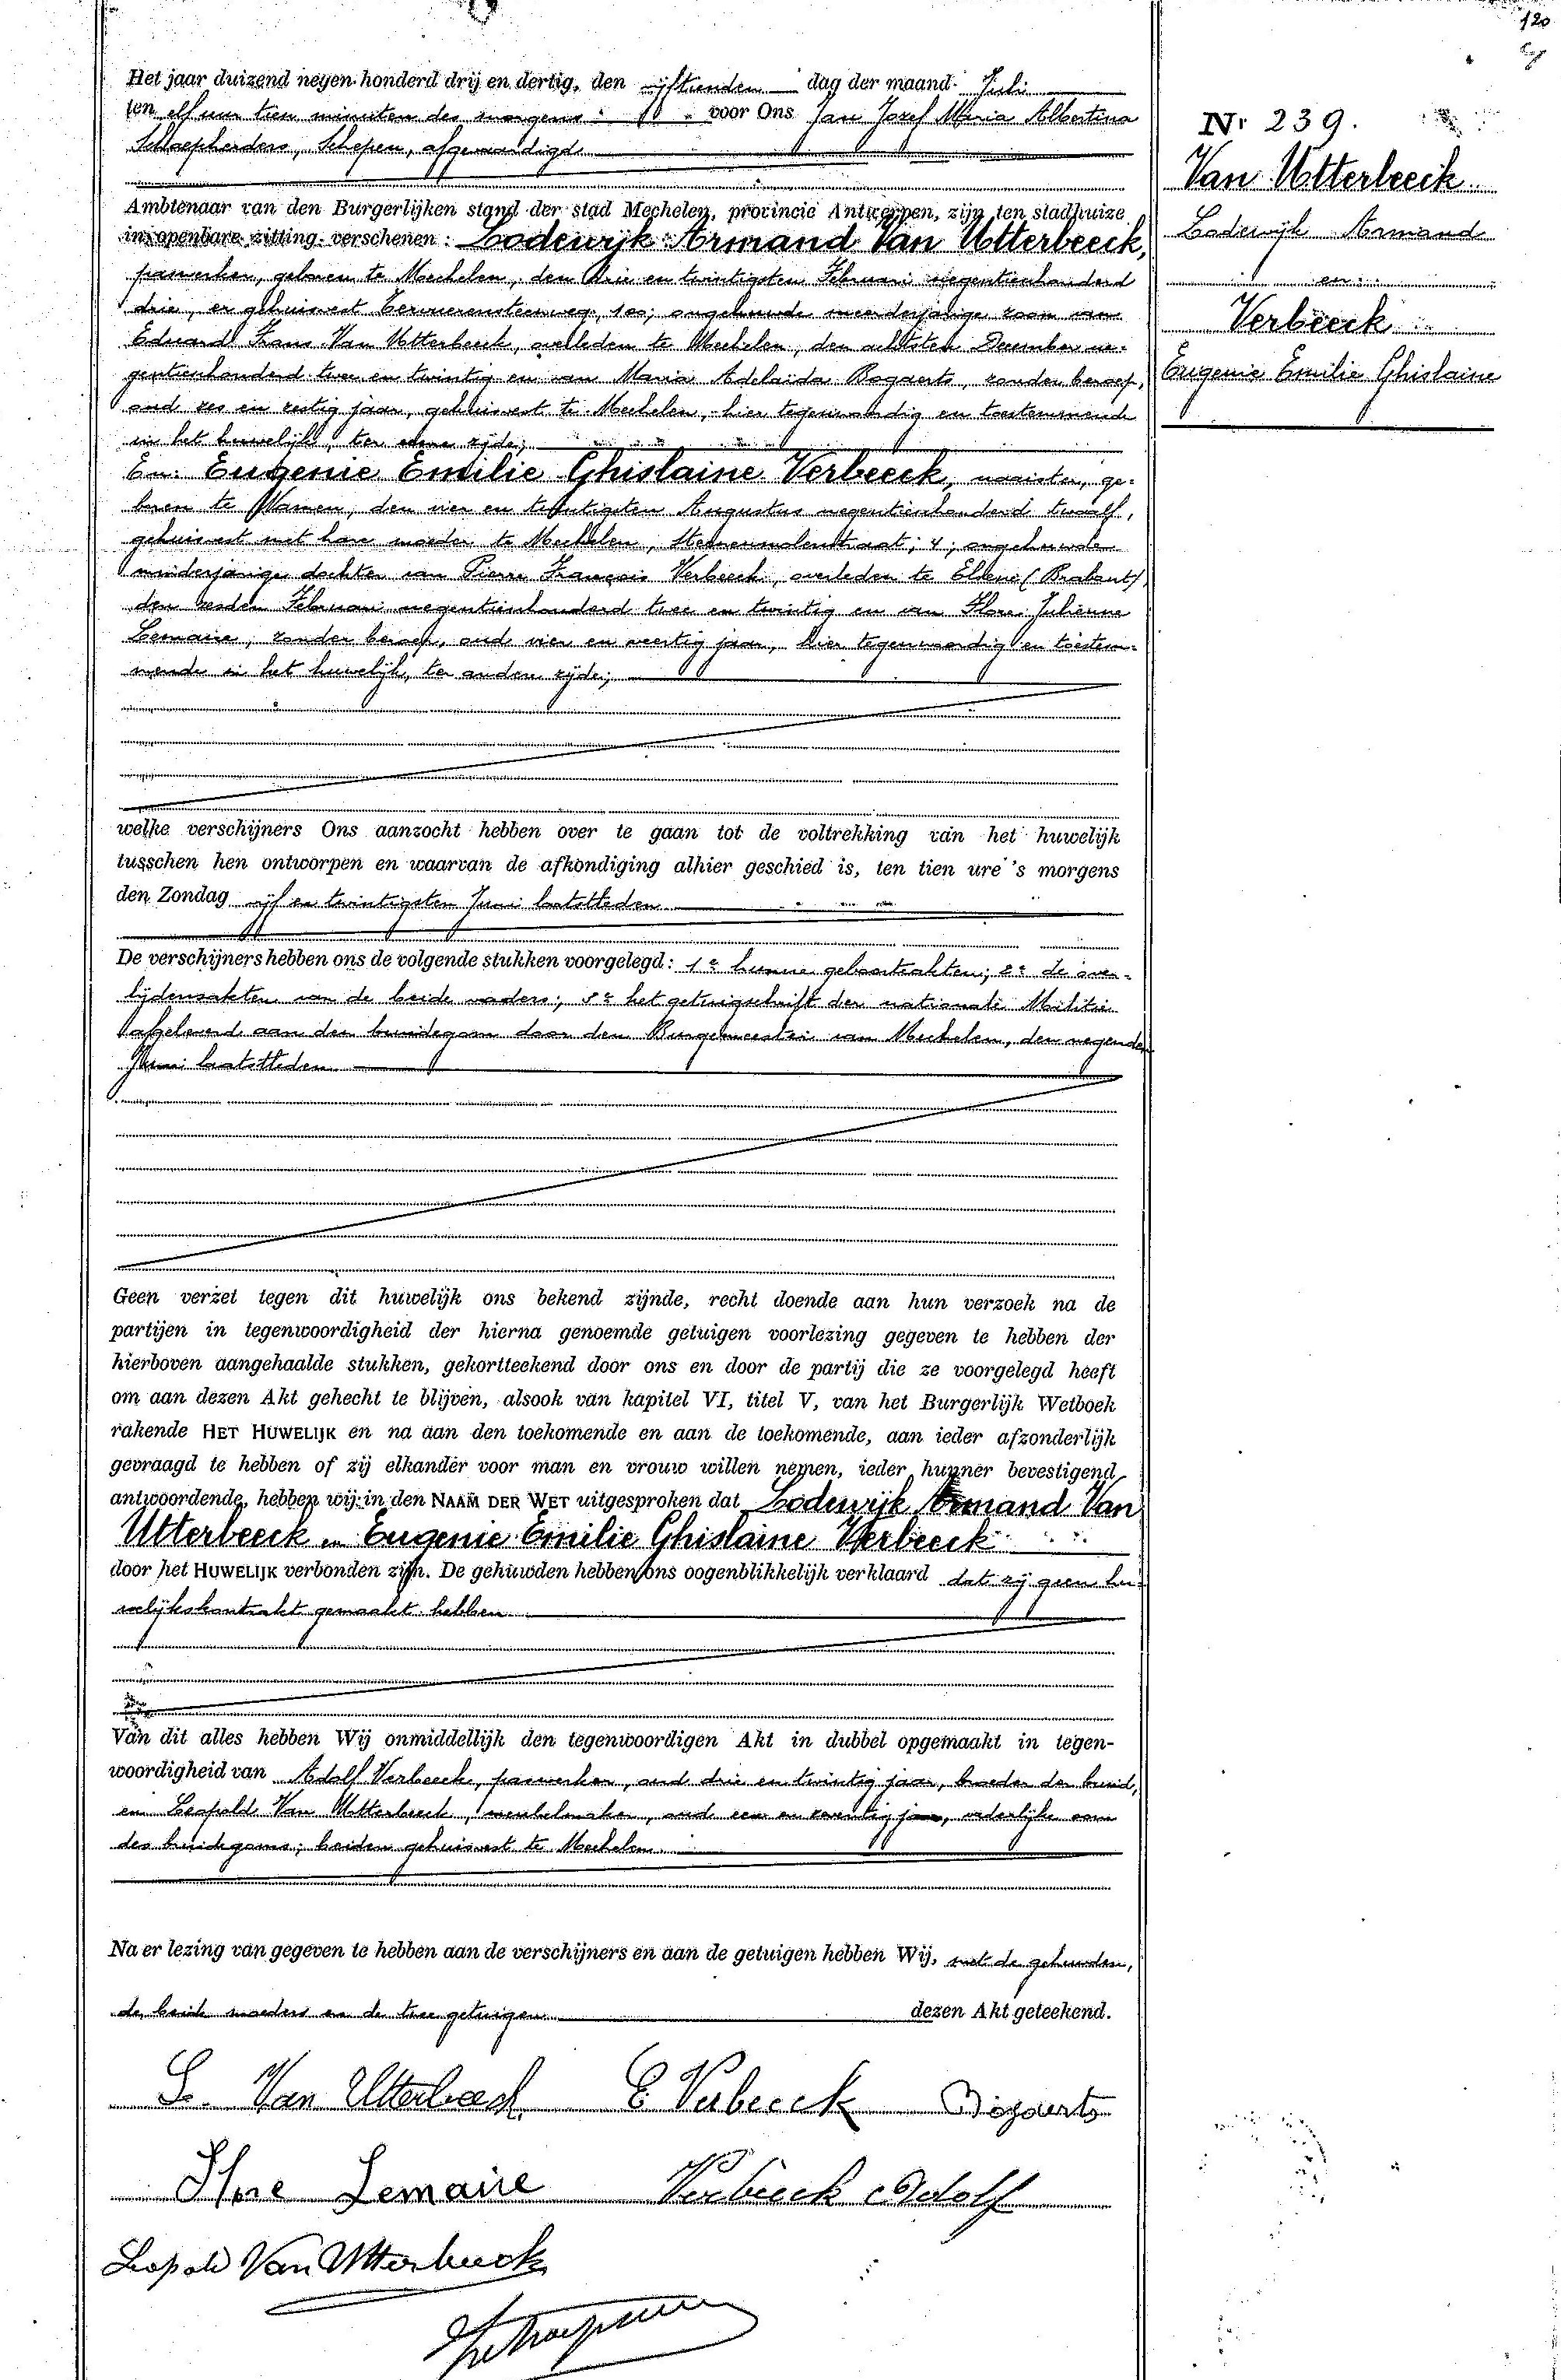 120
Het jaar duizend negen honderd drij en dertig, den vijftienden dag der maand Juli
ten elf uur tien minuten des morgens voor Ons Jan Jozef Maria Albertina
Schaepherders, Schepen, afgevaardigd
Ambtenaar van den Burgerlijken stand der stad Mechelen, provincie Antwerpen, zijn ten stadhuize
in openbare zitting verschenen: Lodewijk Armand Van Utterbeeck,
paswerker, geboren te Mechelen, den drie en twintigsten Februari negentienhonderd
drie, er gehuisvest, 100; ongehuwde meerderjarige zoon van
Eduard Frans Van Utterbeeck, overleden te Mechelen, den achtsten December ne-
gentienhonderd twee en twintig en van Maria Adelaida Bogaerts, zonder beroep,
oud zes en zestig jaar, gehuisvest te Mechelen, hier tegenwoordig en toestemmende
in het huwelijk, ter eenre zijde;
En: Eugenie Emilie Ghislaine Verbeeck, naaister, ge-
boren te Wamen, den vier en twintigsten Augustus negentienhonderd twaalf,
gehuisvest met hare moeder te Mechelen, 4; ongehuwde
minderjarige dochter van Pierre François Verbeeck, overleden te (Brabant)
den Februari negentienhonderd twee en twintig en van Flore Julienne
Lemaire, zonder beroep, oud vier en veertig jaar, hier tegenwoordig en toestem-
mende in het huwelijk, ter andere zijde;
welke verschijners Ons aanzocht hebben over te gaan tot de voltrekking van het huwelijk
tusschen hen ontworpen en waarvan de afkondiging alhier geschied is, ten tien ure 's morgens
den Zondag vijf en twintigsten Juni laatstleden
De verschijners hebben ons de volgende stukken voorgelegd: 1e hunne geboorteakten; 2e de over-
lijdensakten van de beide vaders; 3e het getuigschrift der nationale Militie
afgeleverd aan den bruidegom door den Burgemeester van Mechelen, den negenden
Juni laatstleden
Geen verzet tegen dit huwelijk ons bekend zijnde, recht doende aan hun verzoek na de
partijen in tegenwoordigheid der hierna genoemde getuigen voorlezing gegeven te hebben der
hierboven aangehaalde stukken, gekortteekend door ons en door de partij die ze voorgelegd heeft
om aan dezen Akt gehecht te blijven, alsook van kapitel VI, titel V, van het Burgerlijk Wetboek
rakende HET HUWELIJK en na aan den toekomende en aan de toekomende, aan ieder afzonderlijk
gevraagd te hebben of zij elkander voor man en vrouw willen nemen, ieder hunner bevestigend
antwoordende, hebben wij in den NAAM DER WET uitgesproken dat Lodewijk Armand Van
Utterbeeck en Eugenie Emilie Ghislaine Verbeeck
door het HUWELIJK verbonden zijn. De gehuwden hebben ons oogenblikkelijk verklaard dat zij geen hu-
welijkskontrakt gemaakt hebben
Van dit alles hebben Wij onmiddellijk den tegenwoordigen Akt in dubbel opgemaakt in tegen-
woordigheid van Adolf Verbeeck, paswerker, oud drie en twintig jaar, broeder der bruid,
en Leopold Van Utterbeeck, meubelmaker, oud een en zeventig jaar, vaderlijke oom
des bruidegoms; beiden gehuisvest te Mechelen.
Na er lezing van gegeven te hebben aan de verschijners en aan de getuigen hebben Wij, met de gehuwden,
de beide moeders en de twee getuigen dezen Akt geteekend.
L. Van Utterbeeck E Verbeeck Bogaerts
Flore Lemaire Verbeeck Adolf
Leopold Van Utterbeeck
Nr 239.
Van Utterbeeck
Lodewijk Armand
en
Verbeeck
Eugenie Emilie Ghislaine